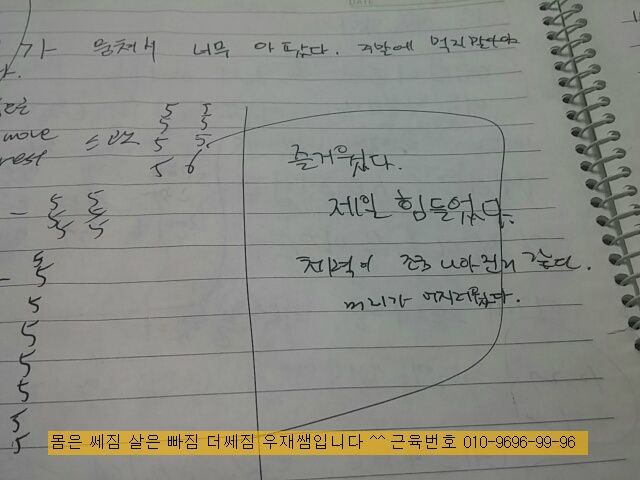 가 뭉쳐서 너무 아팠다. 주말에 먹지말아야
다.
move
rest
5 5
5 5
5 5
5 6
즐거웠다.
제일 힘들었다.
- 5 5
5 5
5 5
체력이 조금 나아진거 같다.
머리가 어지러웠다.
- 5
5
5
5
5
5
5
5
몸은 쎄짐 살은 빠짐 더쎄짐 우재쌤입니다 ^^ 근육번호 010-9696-99-96